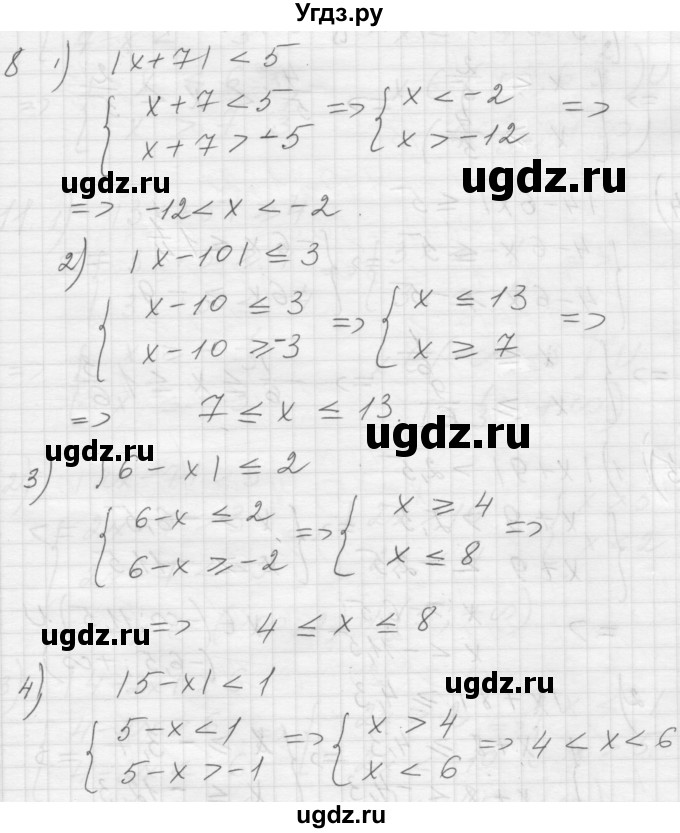 Угдз.ру
8 1) |x+7| < 5
{ x+7 < 5 => { x < -2 =>
x+7 > -5 x > -12
ugdz.ru ugdz.ru
=> -12 < x < -2
2) |x-10| ≤ 3
{ x-10 ≤ 3 => { x ≤ 13 =>
x-10 ≥ -3 x ≥ 7
=> 7 ≤ x ≤ 13
ugdz.ru ugdz.ru
3) |6-x| ≤ 2
{ 6-x ≤ 2 => { x ≥ 4 =>
6-x ≥ -2 x ≤ 8
ugdz.ru => 4 ≤ x ≤ 8
4) |5-x| < 1
ugdz.ru
{ 5-x < 1 => { x > 4 => 4 < x < 6
5-x > -1 x < 6
ugdz.ru